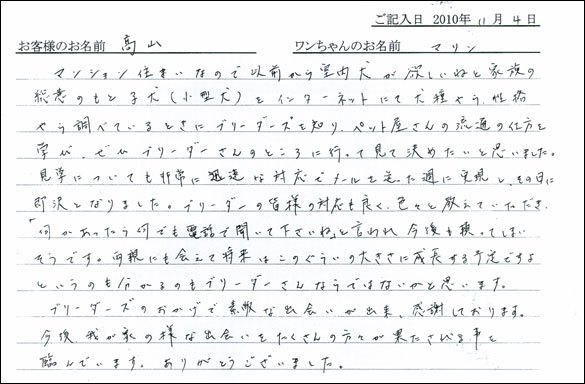 ご記入日 2010年 11月 4日
お客様のお名前 高山 ワンちゃんのお名前 マリン
マンション住まいなので以前から室内犬が欲しいねと家族の
総意のもと子犬(小型犬)をインターネットにて犬種やら、性格
やら調べているときにブリーダーズを知り、ペット屋さんの流通の仕方を
学び、ぜひブリーダーさんのところに行って見て決めたいと思いました。
見学についても非常に迅速な対応でメールを送った週に実現し、その日に
即決となりました。ブリーダーの皆様の対応も良く、色々と教えていただき、
「何かあったら何でも電話で聞いて下さいね」と言われ今後も頼ってしまい
そうです。両親にも会えて将来はこのぐらいの大きさに成長する予定ですよ
というのも分かるのもブリーダーさんならではないかと思います。
ブリーダーズのおかげで素敵な出会いが出来、感謝しております。
今後、我が家の様な出会いをたくさんの方々が果たされる事を
臨んでいます。ありがとうございました。